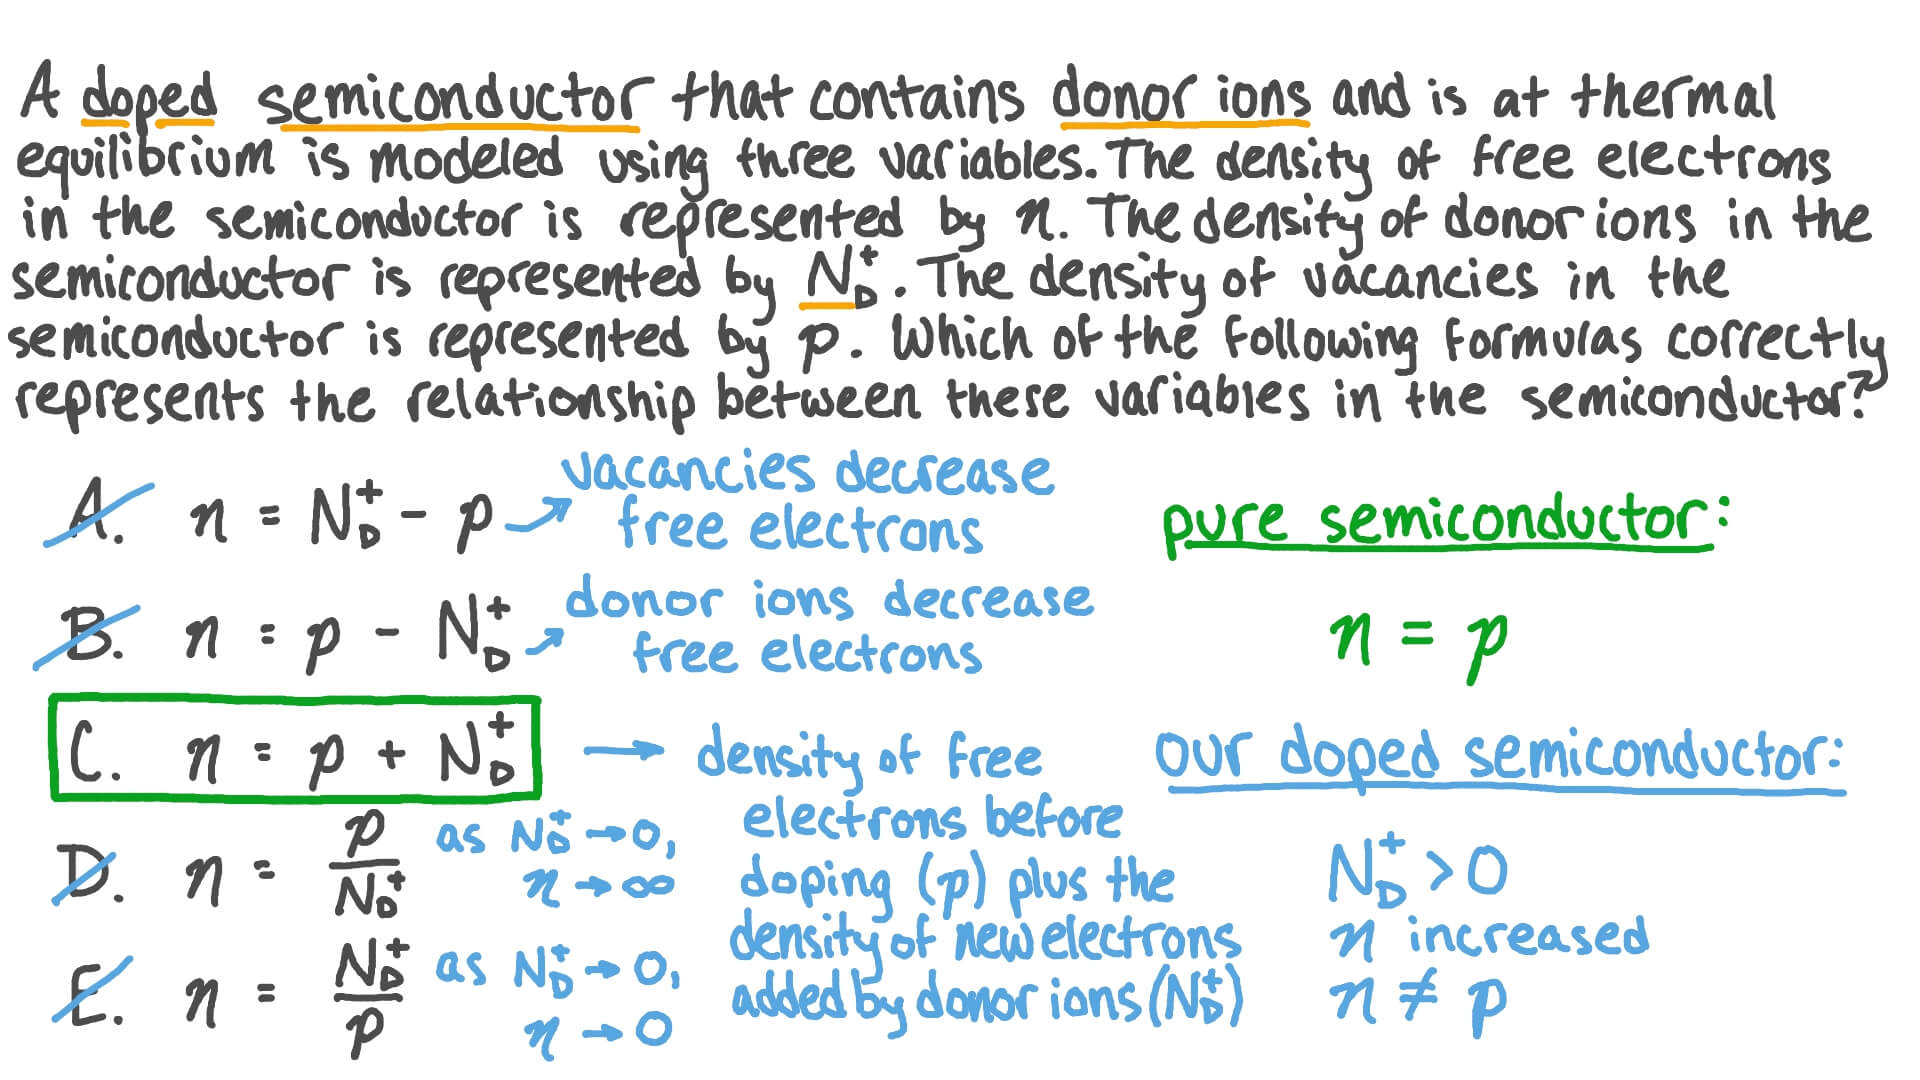 A doped semiconductor that contains donor ions and is at thermal
equilibrium is modeled using three variables. The density of free electrons
in the semiconductor is represented by n. The density of donor ions in the
semiconductor is represented by N_D^+. The density of vacancies in the
semiconductor is represented by p. Which of the following formulas correctly
represents the relationship between these variables in the semiconductor?
A. n = N_D^+ - p → vacancies decrease
free electrons
B. n = p - N_D^+ → donor ions decrease
free electrons
C. n = p + N_D^+ → density of free
electrons before
doping (p) plus the
density of new electrons
added by donor ions (N_D^+)
D. n = p/N_D^+ as N_D^+ → 0,
n → ∞
E. n = N_D^+/p as N_D^+ → 0,
n → 0
pure semiconductor:
n = p
our doped semiconductor:
N_D^+ > 0
n increased
n ≠ p